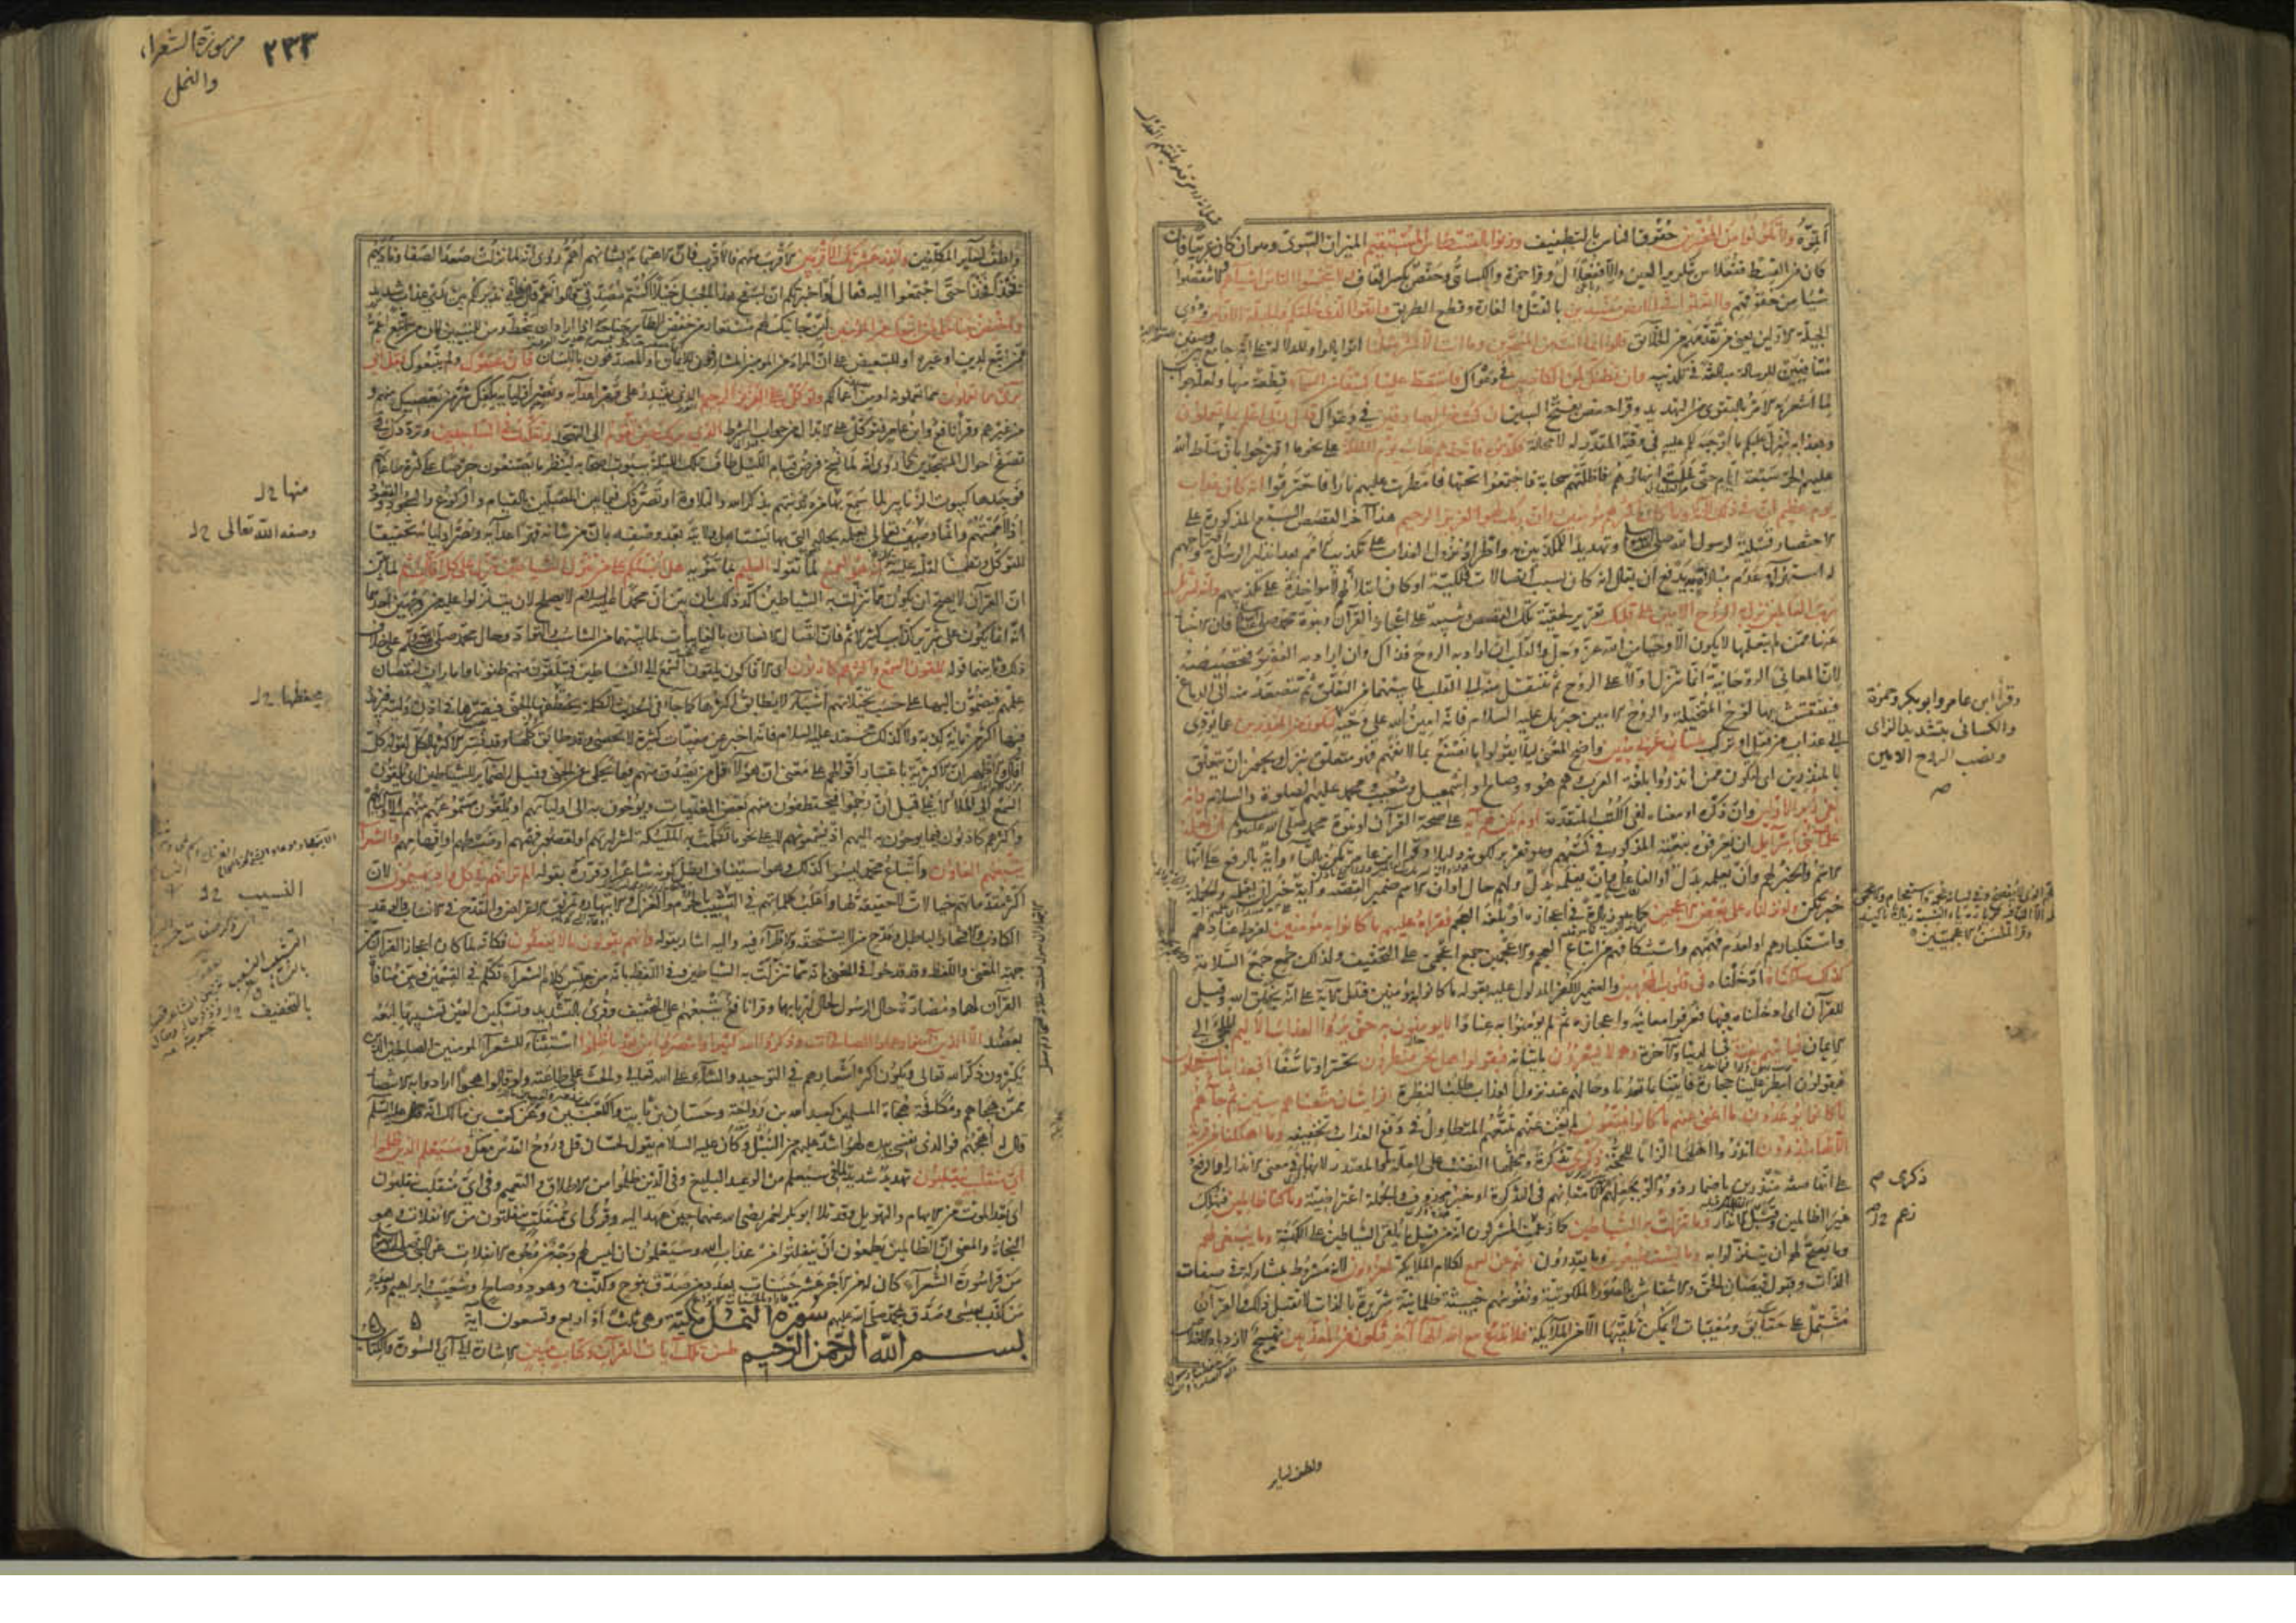 أتموه ولا تكونوا من المخسرين حقوق الناس بالتطفيف وزنوا بالقسطاس المستقيم الميزان السوي وهو ان كان عربيا فان
كان من القسط ففعلاس بتكرير العين والا ففعلال وقرا حمزة والكسائي وحفص بكسر القاف ولا تبخسوا الناس اشياءهم ولا تنقصوا
شيئا من حقوقهم ولا تعثوا في الارض مفسدين بالقتل والغارة وقطع الطريق واتقوا الذي خلقكم والجبلة الاولين وذوي
الجبلة الاولين يعني من تقدمهم من الخلائق قالوا انما انت من المسحرين وما انت الا بشر مثلنا اتوا بالواو للدلالة على انه جامع بين وصفين
متنافيين للرسالة مبالغة في تكذيبه وان نظنك لمن الكاذبين في دعواك فاسقط علينا كسفا من السماء قطعة منها ولعله جواب
لما اشعر به الامر بالتقوى من التهديد وقرا حفص بفتح السين ان كنت من الصادقين في دعواك قال ربي اعلم بما تعملون
وبعذابه منزل عليكم ما اوجبه لكم عليه في وقته المقدر له لا محالة فكذبوه فاخذهم عذاب يوم الظلة على نحو ما اقترحوا بان سلط الله
عليهم الحر سبعة ايام حتى غلت انهارهم فاظلتهم سحابة فاجتمعوا تحتها فامطرت عليهم نارا فاحترقوا انه كان عذاب
يوم عظيم ان في ذلك لآية وما كان اكثرهم مؤمنين وان ربك لهو العزيز الرحيم هذا آخر القصص السبع المذكورة على
الاختصار تسلية لرسول الله صلى الله عليه وسلم وتهديدا للمكذبين به واطراد نزول العذاب على تكذيب الامم بعد انذار الرسل به واقتراحهم
له استهزاء وعدم مبالاة به يدفع ان يقال انه كان بسبب اتصالات فلكية او كان ابتلاء لهم لا مؤاخذة على تكذيبهم وانه لتنزيل
رب العالمين نزل به الروح الامين على قلبك تقرير لحقية تلك القصص وتنبيه على اعجاز القرآن ونبوة محمد صلى الله عليه وسلم فان الاخبار
عنها ممن لم يتعلمها لا يكون الا وحيا من الله عز وجل والقلب ان اراد به الروح فذاك وان اراد به العضو فتخصيصه
لان المعاني الروحانية انما تنزل اولا على الروح ثم تنتقل منه الى القلب لما بينهما من التعلق ثم تتصعد منه الى الدماغ
فينتقش بها لوح المتخيلة والروح الامين جبريل عليه السلام فانه امين الله على وحيه لتكون من المنذرين عما يؤدي
الى عذاب من فعل او ترك بلسان عربي مبين واضح المعنى لئلا يقولوا ما نصنع بما لا نفهمه فهو متعلق بنزل ويجوز ان يتعلق
بالمنذرين اي لتكون ممن انذروا بلغة العرب وهم هود وصالح واسمعيل وشعيب ومحمد عليهم الصلوة والسلام وانه
لفي زبر الاولين وان ذكره او معناه لفي الكتب المتقدمة اولم يكن لهم آية على صحة القرآن او نبوة محمد صلى الله عليه وسلم ان يعلمه
علماء بني اسرائيل ان يعرفوه بنعته المذكور في كتبهم وهو تقرير لكونه دليلا وقرا ابن عامر تكن بالتاء وآية بالرفع على انها
الاسم والخبر لهم وان يعلمه بدل او الفاعل وان يعلمه بدل ولهم حال او ان الاسم ضمير القصة وآية خبر ان يعلمه والجملة
خبر تكن ولو نزلناه على بعض الاعجمين كما هو زيادة في اعجازه او بلغة العجم فقرأه عليهم ما كانوا به مؤمنين لفرط عنادهم
واستكبارهم او لعدم فهمهم واستنكافهم من اتباع العجم والاعجمين جمع اعجمي على التخفيف ولذلك جمع جمع السلامة
كذلك سلكناه ادخلناه في قلوب المجرمين والضمير للكفر المدلول عليه بقوله ما كانوا به مؤمنين فتدل الآية على انه بخلق الله وقيل
للقرآن اي ادخلناه فيها فعرفوا معانيه واعجازه ثم لم يؤمنوا به عنادا لا يؤمنون به حتى يروا العذاب الاليم الملجئ الى
الايمان فياتيهم بغتة في الدنيا والآخرة وهم لا يشعرون باتيانه فيقولوا هل نحن منظرون تحسرا وتاسفا افبعذابنا يستعجلون
فيقولون امطر علينا حجارة فاتنا بما تعدنا وحالهم عند نزول العذاب طلب النظرة افرايت ان متعناهم سنين ثم جاءهم
ما كانوا يوعدون ما اغنى عنهم ما كانوا يمتعون لم يغن عنهم تمتعهم المتطاول في دفع العذاب وتخفيفه وما اهلكنا من قرية
الا لها منذرون انذروا اهلها الزاما للحجة ذكرى تذكرة ومحلها النصب على العلة او المصدر لانها في معنى الانذار او الرفع
على انها صفة منذرون باضمار ذوو او بجعلهم ذكرى لامعانهم في التذكرة او خبر محذوف والجملة اعتراضية وما كنا ظالمين فنهلك
غير الظالمين وقبل الانذار وما تنزلت به الشياطين كما زعمت المشركون انه من قبيل ما يلقى الشياطين على الكهنة وما ينبغي لهم
وما يصح لهم ان يتنزلوا به وما يستطيعون وما يقدرون انهم عن السمع لكلام الملائكة لمعزولون لانه مشروط بمشاركة في صفات
الذات وقبول فيضان الحق والانتقاش بالصور الملكوتية ونفوسهم خبيثة ظلمانية شريرة بالذات لا تقبل ذلك والقرآن
مشتمل على حقائق ومغيبات لا يمكن تلقيها الا من الملائكة فلا تدع مع الله الها آخر فتكون من المعذبين تهييج لازدياد الاخلاص
وقرأ ابن عامر وابو بكر وحمزة
والكسائي بتشديد الزاي
ونصب الروح الامين
صح
ذكرى
زعم
ولطف لساير
٢٣٣
من سورة الشعراء
والنمل
ولطف لسائر المكلفين وانذر عشيرتك الاقربين الاقرب منهم فالاقرب فان الاهتمام بشانهم اهم روي انه لما نزلت صعد الصفا وناداهم
فخذا فخذا حتى اجتمعوا اليه فقال لو اخبرتكم ان بسفح هذا الجبل خيلا أكنتم مصدقي قالوا نعم قال فاني نذير لكم بين يدي عذاب شديد
واخفض جناحك لمن اتبعك من المؤمنين لين جانبك لهم مستعار من خفض الطائر جناحه اذا اراد ان ينحط ومن للتبيين لان من اتبع اعم
ممن اتبع لدين او غيره او للتبعيض على ان المراد من المؤمنين المشارفون للايمان او المصدقون باللسان فان عصوك ولم يتبعوك فقل اني
بريء مما تعملون مما تعملونه او من اعمالكم وتوكل على العزيز الرحيم الذي يقدر على قهر اعدائه ونصر اوليائه يكفك شر من يعصيك منهم و
من غيرهم وقرا نافع وابن عامر فتوكل على الابدال من جواب الشرط الذي يراك حين تقوم الى التهجد وتقلبك في الساجدين وترددك في
تصفح احوال المتهجدين كما روي انه لما نسخ فرض قيام الليل طاف تلك الليلة ببيوت اصحابه لينظر ما يصنعون حرصا على كثرة طاعاتهم
فوجدها كبيوت الزنابير لما سمع بها من دندنتهم بذكر الله والتلاوة او تصرفك فيما بين المصلين بالقيام والركوع والسجود والقعود
اذا اممتهم وانما وصفه تعالى بعلمه بحاله التي بها يستاهل ولايته بعد وصفه بان من شانه قهر اعدائه ونصر اوليائه تحقيقا
للتوكل وتطمينا لقلبه عليه انه هو السميع لما تقوله العليم بما تنويه هل انبئكم على من تنزل الشياطين تنزل على كل افاك اثيم لما بين
ان القرآن لا يصح ان يكون مما تنزلت به الشياطين اكد ذلك بان بين ان محمدا عليه السلام لا يصلح لان يتنزلوا عليه من وجهين احدهما
انه انما يكون على شرير كذاب كثير الاثم فان اتصال الانسان بالغائبات لما بينهما من التناسب والتواد وحال محمد صلى الله عليه وسلم على خلاف
ذلك وثانيهما قوله يلقون السمع واكثرهم كاذبون اي الافاكون يلقون السمع الى الشياطين فيتلقون منهم ظنونا وامارات لنقصان
علمهم فيضمون اليها على حسب تخيلاتهم اشياء لا يطابق اكثرها كما جاء في الحديث الكلمة يخطفها الجني فيقرها في اذن وليه فيزيد
فيها اكثر من مائة كذبة ولا كذلك محمد عليه السلام فانه اخبر عن مغيبات كثيرة لا تحصى وقد طابق كلها وقد فسر الاكثر بالكل لقوله كل
افاك والاظهر ان الاكثرية باعتبار اقوالهم على معنى ان هؤلاء قل من يصدق منهم فيما يحكي عن الجني وقيل الضمائر للشياطين اي يلقون
السمع الى الملأ الاعلى قبل ان رجموا فيختطفون منهم بعض المغيبات ويوحون به الى اوليائهم او يلقون مسموعهم منهم الى اوليائهم
واكثرهم كاذبون فيما يوحون به اليهم اذ يسمعونهم لا على نحو ما تكلمت به الملئكة لشرارتهم او لقصور فهمهم او ضبطهم او افهامهم والشعراء
يتبعهم الغاوون واتباع محمد ليسوا كذلك وهو استيناف ابطل كونه شاعرا وقرره بقوله الم تر انهم في كل واد يهيمون لان
اكثر مقدماتهم خيالات لا حقيقة لها واغلب كلماتهم في النسيب بالحرم والغزل والابتهار وتمزيق الاعراض والقدح في الانساب والوعد
الكاذب والافتخار الباطل ومدح من لا يستحقه والاطراء فيه واليه اشار بقوله وانهم يقولون ما لا يفعلون فكانه لما كان اعجاز القرآن من
جهة المعنى واللفظ وقد قدحوا في المعنى بانه مما تنزلت به الشياطين وفي اللفظ بانه من جنس كلام الشعراء تكلم في القسمين وبين منافاة
القرآن لهما ومضادة حال الرسول لحال اربابهما وقرا نافع يتبعهم على التخفيف وقرئ بالتشديد وتسكين العين تشبيها لتبعه
بعضد الا الذين آمنوا وعملوا الصالحات وذكروا الله كثيرا وانتصروا من بعد ما ظلموا استثناء للشعراء المؤمنين الصالحين الذين
يكثرون ذكر الله تعالى ويكون اكثر اشعارهم في التوحيد والثناء على الله تعالى والحث على طاعته ولو قالوا هجوا ارادوا به الانتصار
ممن هجاهم ومكافحة هجاة المسلمين كعبد الله بن رواحة وحسان بن ثابت والكعبين وعن كعب بن مالك انه عليه السلام
قال له اهجهم فوالذي نفسي بيده لهو اشد عليهم من النبل وكان عليه السلام يقول لحسان قل وروح القدس معك وسيعلم الذين ظلموا
اي منقلب ينقلبون تهديد شديد لما في سيعلم من الوعيد البليغ وفي الذين ظلموا من الاطلاق والتعميم وفي اي منقلب ينقلبون
اي بعد الموت من الابهام والتهويل وقد تلاها ابو بكر لعمر رضي الله عنهما حين عهد اليه وقرئ اي منفلت ينفلتون من الانفلات وهو
النجاة والمعنى ان الظالمين يطمعون ان ينفلتوا من عذاب الله وسيعلمون ان ليس لهم وجه من وجوه الانفلات عن النبي صلى الله عليه وسلم
من قرا سورة الشعراء كان له من الاجر عشر حسنات بعدد من صدق بنوح وكذب به وهود وصالح وشعيب وابراهيم وبعدد
من كذب بعيسى وصدق بمحمد صلى الله عليهم سورة النمل مكية وهي ثلث او اربع وتسعون آية
بسم الله الرحمن الرحيم طس تلك آيات القرآن وكتاب مبين الاشارة الى آي السورة والكتاب
منها
وصفه الله تعالى
يخطفها
النسيب
بالتخفيف